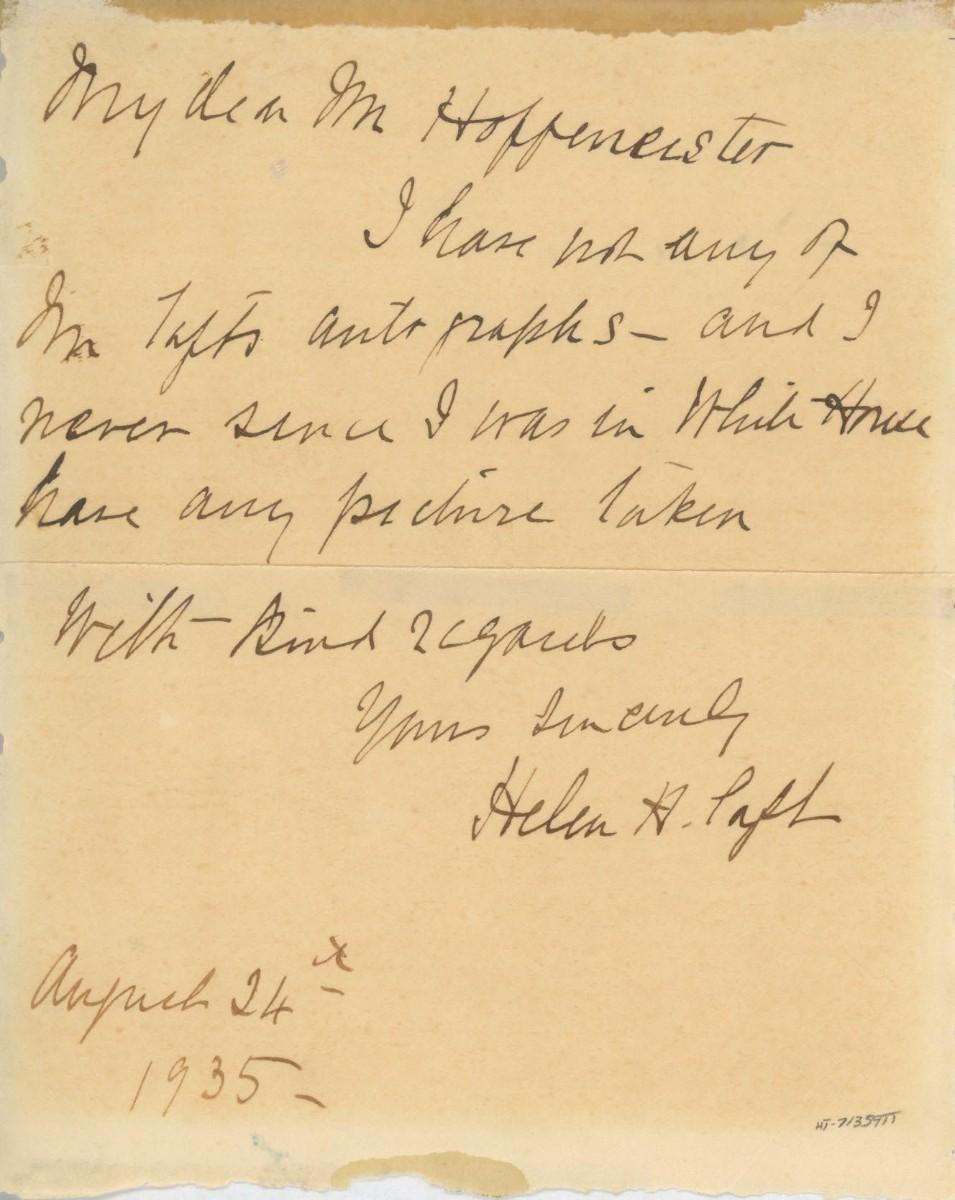 My dear Mr Hoffmeister
I have not any of
Mr Tafts autographs — and I
never since I was in White House
have any picture taken
With kind regards
Yours sincerely
Helen H. Taft
August 24th
1935 —